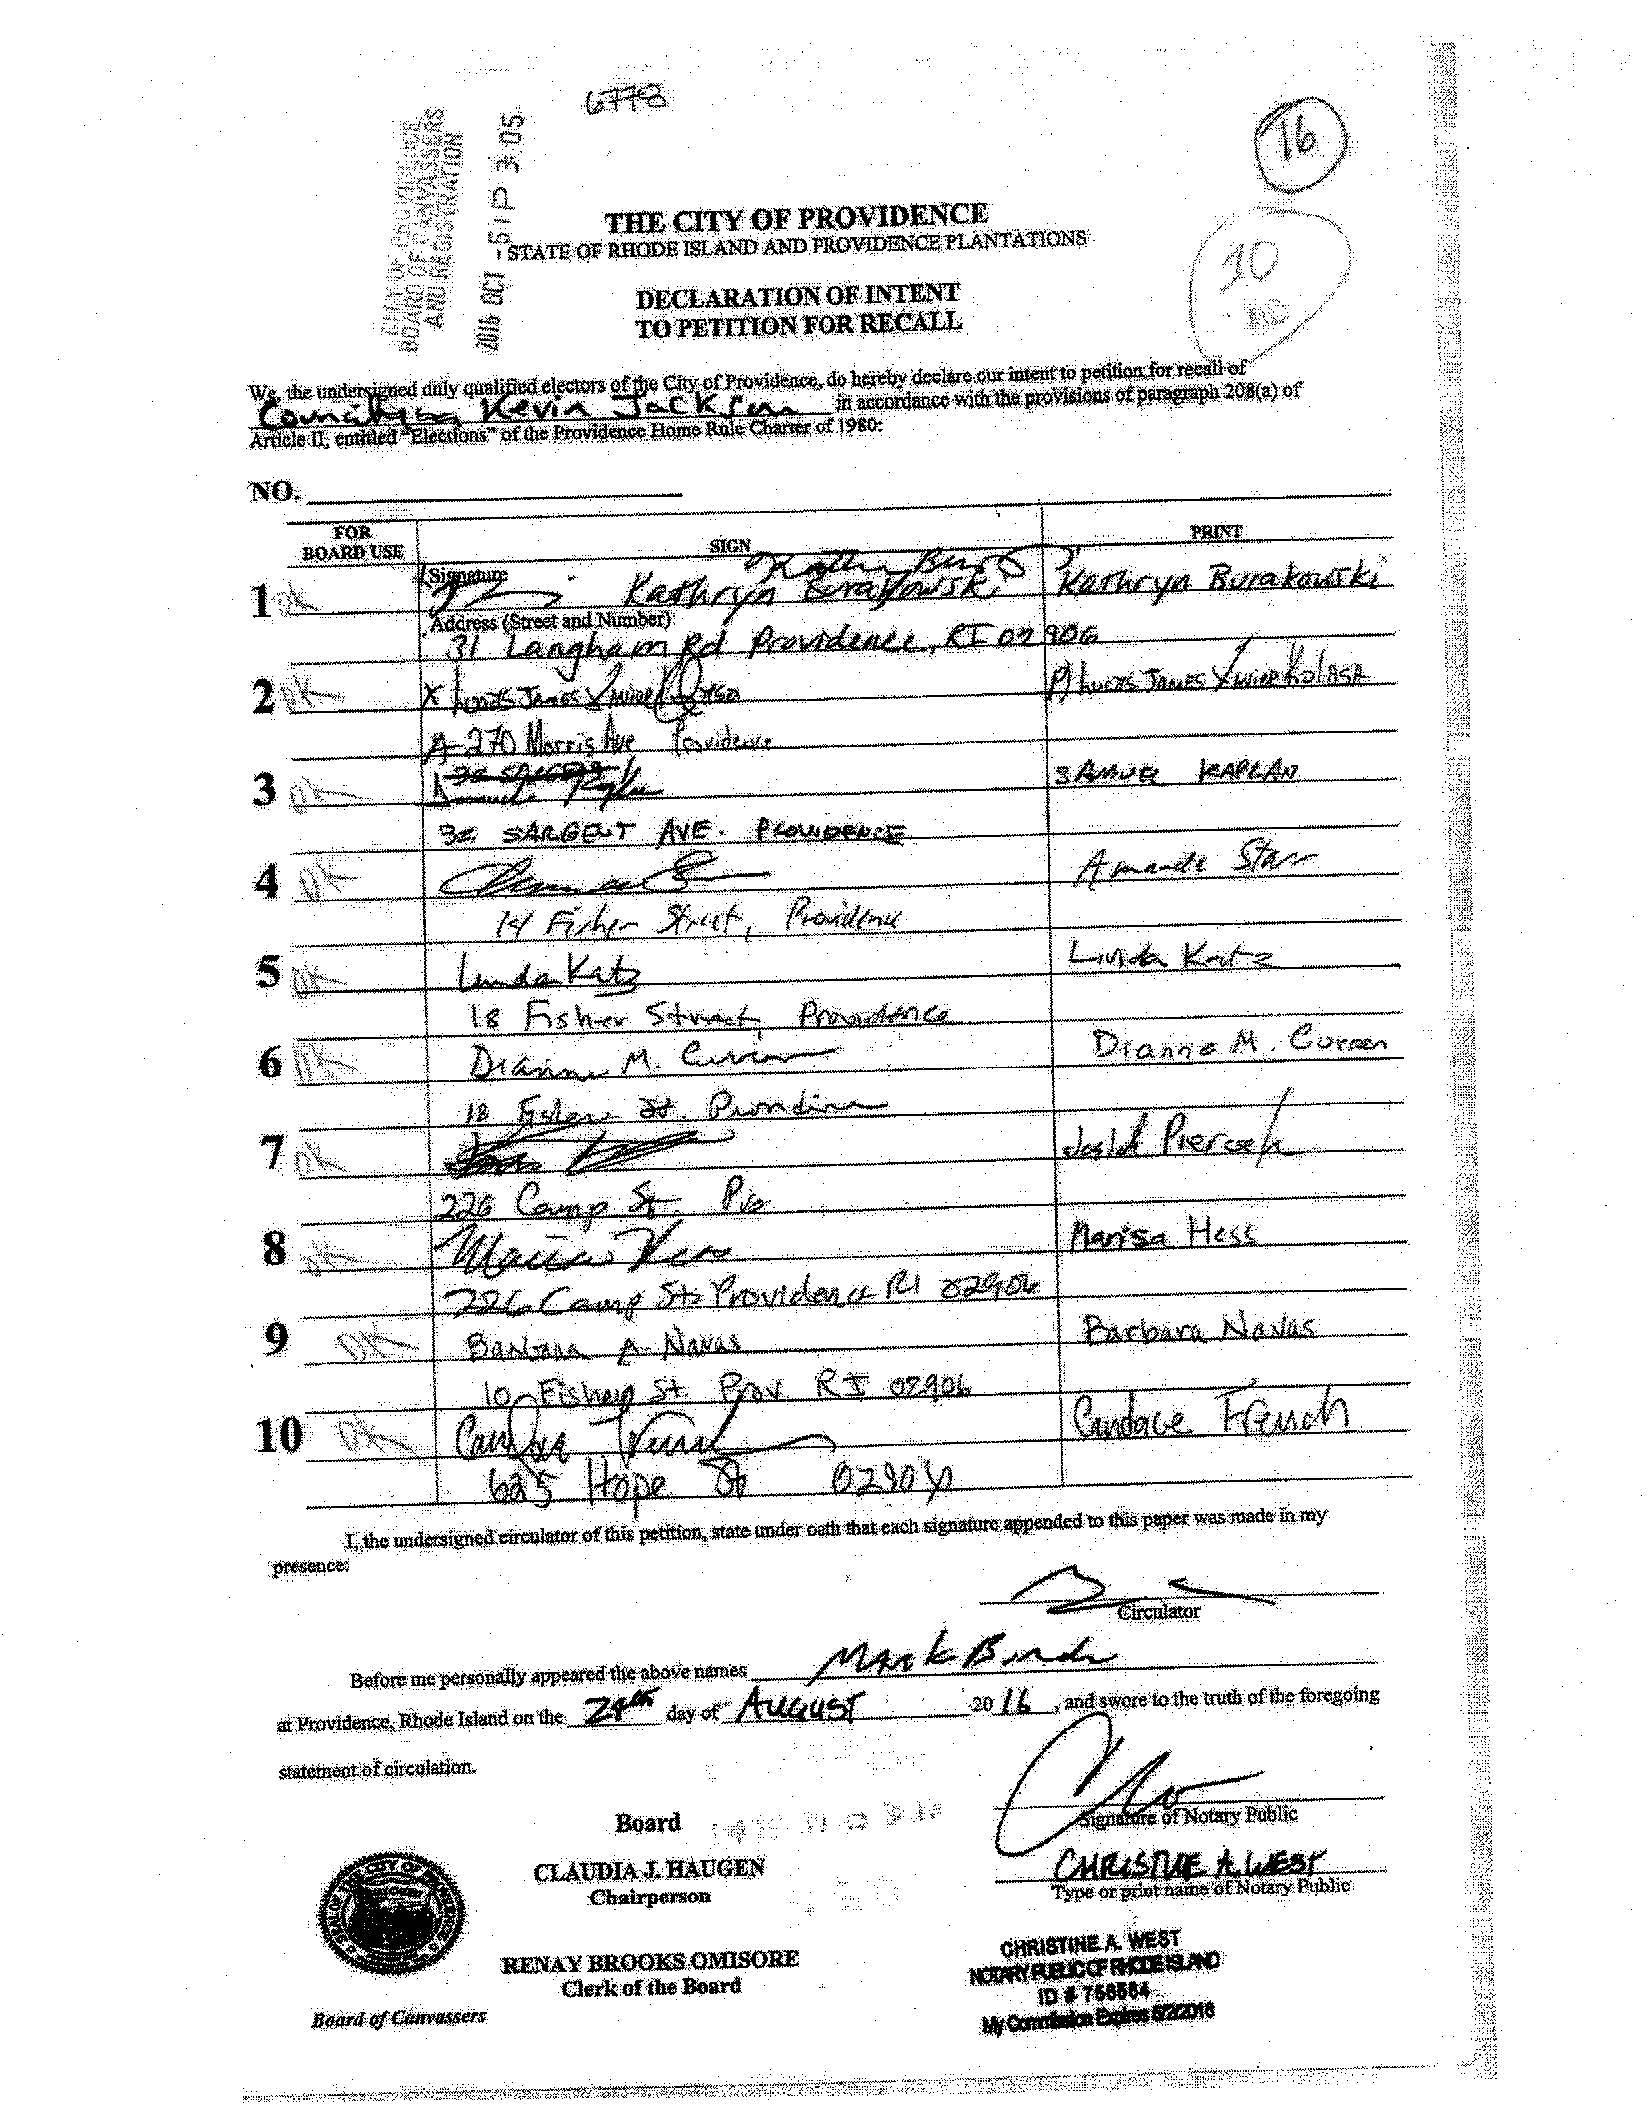 6778
16
CITY OF PROVIDENCE
BOARD OF CANVASSERS
AND REGISTRATION
2016 OCT -5 P 3:05
THE CITY OF PROVIDENCE
STATE OF RHODE ISLAND AND PROVIDENCE PLANTATIONS
10
DECLARATION OF INTENT
TO PETITION FOR RECALL
We, the undersigned duly qualified electors of the City of Providence, do hereby declare our intent to petition for recall of
Councilman Kevin Jackson in accordance with the provisions of paragraph 208(a) of
Article II, entitled "Elections" of the Providence Home Rule Charter of 1980:
NO.
FOR BOARD USE SIGN PRINT
Signature
1 OK Kathryn Burakowski Kathryn Burakowski
Address (Street and Number)
31 Langham Rd Providence, RI 02906
2 OK X James James
A-270 Morris Ave Providence
3 OK SAMUEL KAPLAN
SARGENT AVE. PROVIDENCE
4 OK Amanda Starr
14 Fisher Street, Providence
5 OK Linda Katz Linda Katz
18 Fisher Street, Providence
6 OK Dianne M. Curran Dianne M. Curran
18 Fisher St. Providence
7 OK
226 Camp St. Pro
8 OK Marisa Hess
226 Camp St. Providence RI 02906
9 OK Barbara A. Navas Barbara Navas
10 Fisher St Prov RI 02906
10 OK Candace French Candace French
625 Hope St
I, the undersigned circulator of this petition, state under oath that each signature appended to this paper was made in my
presence:
Circulator
Before me personally appeared the above names Mark Binder
at Providence, Rhode Island on the day of August 2016, and swore to the truth of the foregoing
statement of circulation.
Signature of Notary Public
CHRISTINE A. WEST
Type or print name of Notary Public
Board
CLAUDIA J. HAUGEN
Chairperson
RENAY BROOKS OMISORE
Clerk of the Board
Board of Canvassers
CHRISTINE A. WEST
NOTARY PUBLIC OF RHODE ISLAND
ID # 756564
My Commission Expires